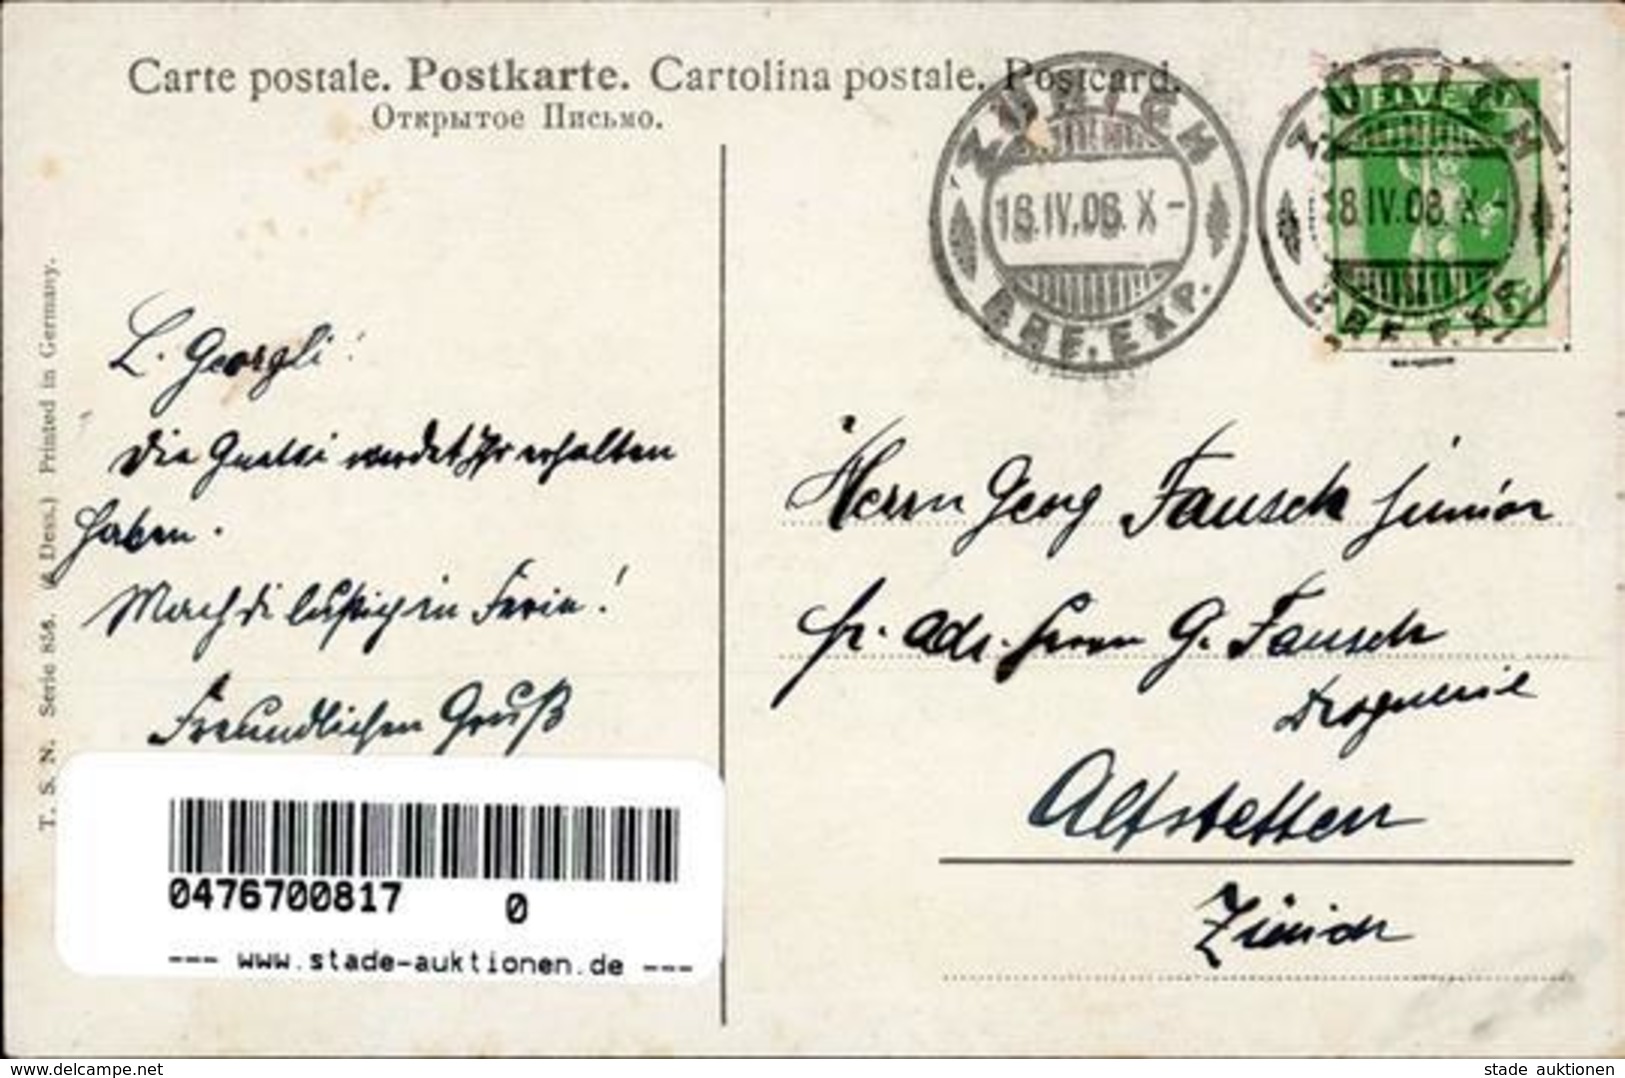 Carte postale. Postkarte. Cartolina postale. Postcard.
Открытое Письмо.
ZÜRICH
18.IV.08. X-
BRF. EXP.
HELVETIA
ZÜRICH
18.IV.08. X-
BRF. EXP.
L. Georgli!
Die Guatsi werdet Ihr erhalten
haben.
Mach di lustig in Ferie!
Freundlichen Gruß
Herrn Georg Fausch junior
pr. Adr. Herrn G. Fausch
Droguerie
Altstetten
Zürich
T. S. N. Serie 856. (4 Dess.) Printed in Germany.
0476700817 0
--- www.stade-auktionen.de ---
www.delcampe.net
stade auktionen